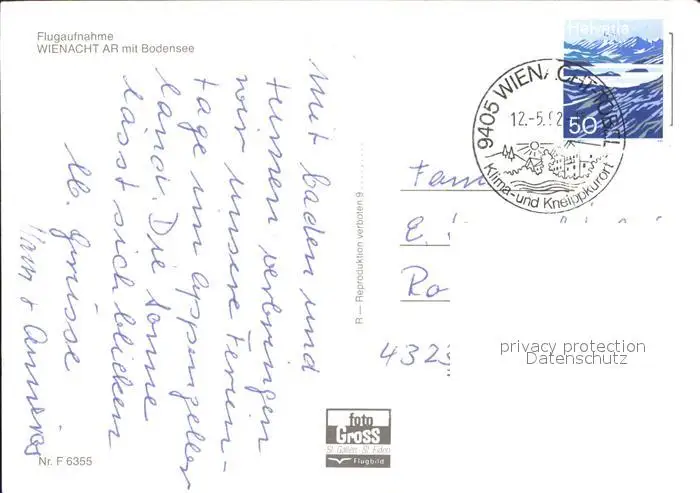 Flugaufnahme
WIENACHT AR mit Bodensee
Mit baden und
turnen verbringen
wir unsere Ferien-
tage im Appenzeller
land. Die Sonne
lässt sich blicken
lb. Grüsse
Nr. F 6355
R — Reproduktion verboten 9
foto
Gross
St. Gallen St. Fiden
Flugbild
Helvetia
50
9405 WIENACHT-TOBEL
12.-5.92
Klima-und Kneippkurort
Fam
E.
Ro
4323
privacy protection
Datenschutz